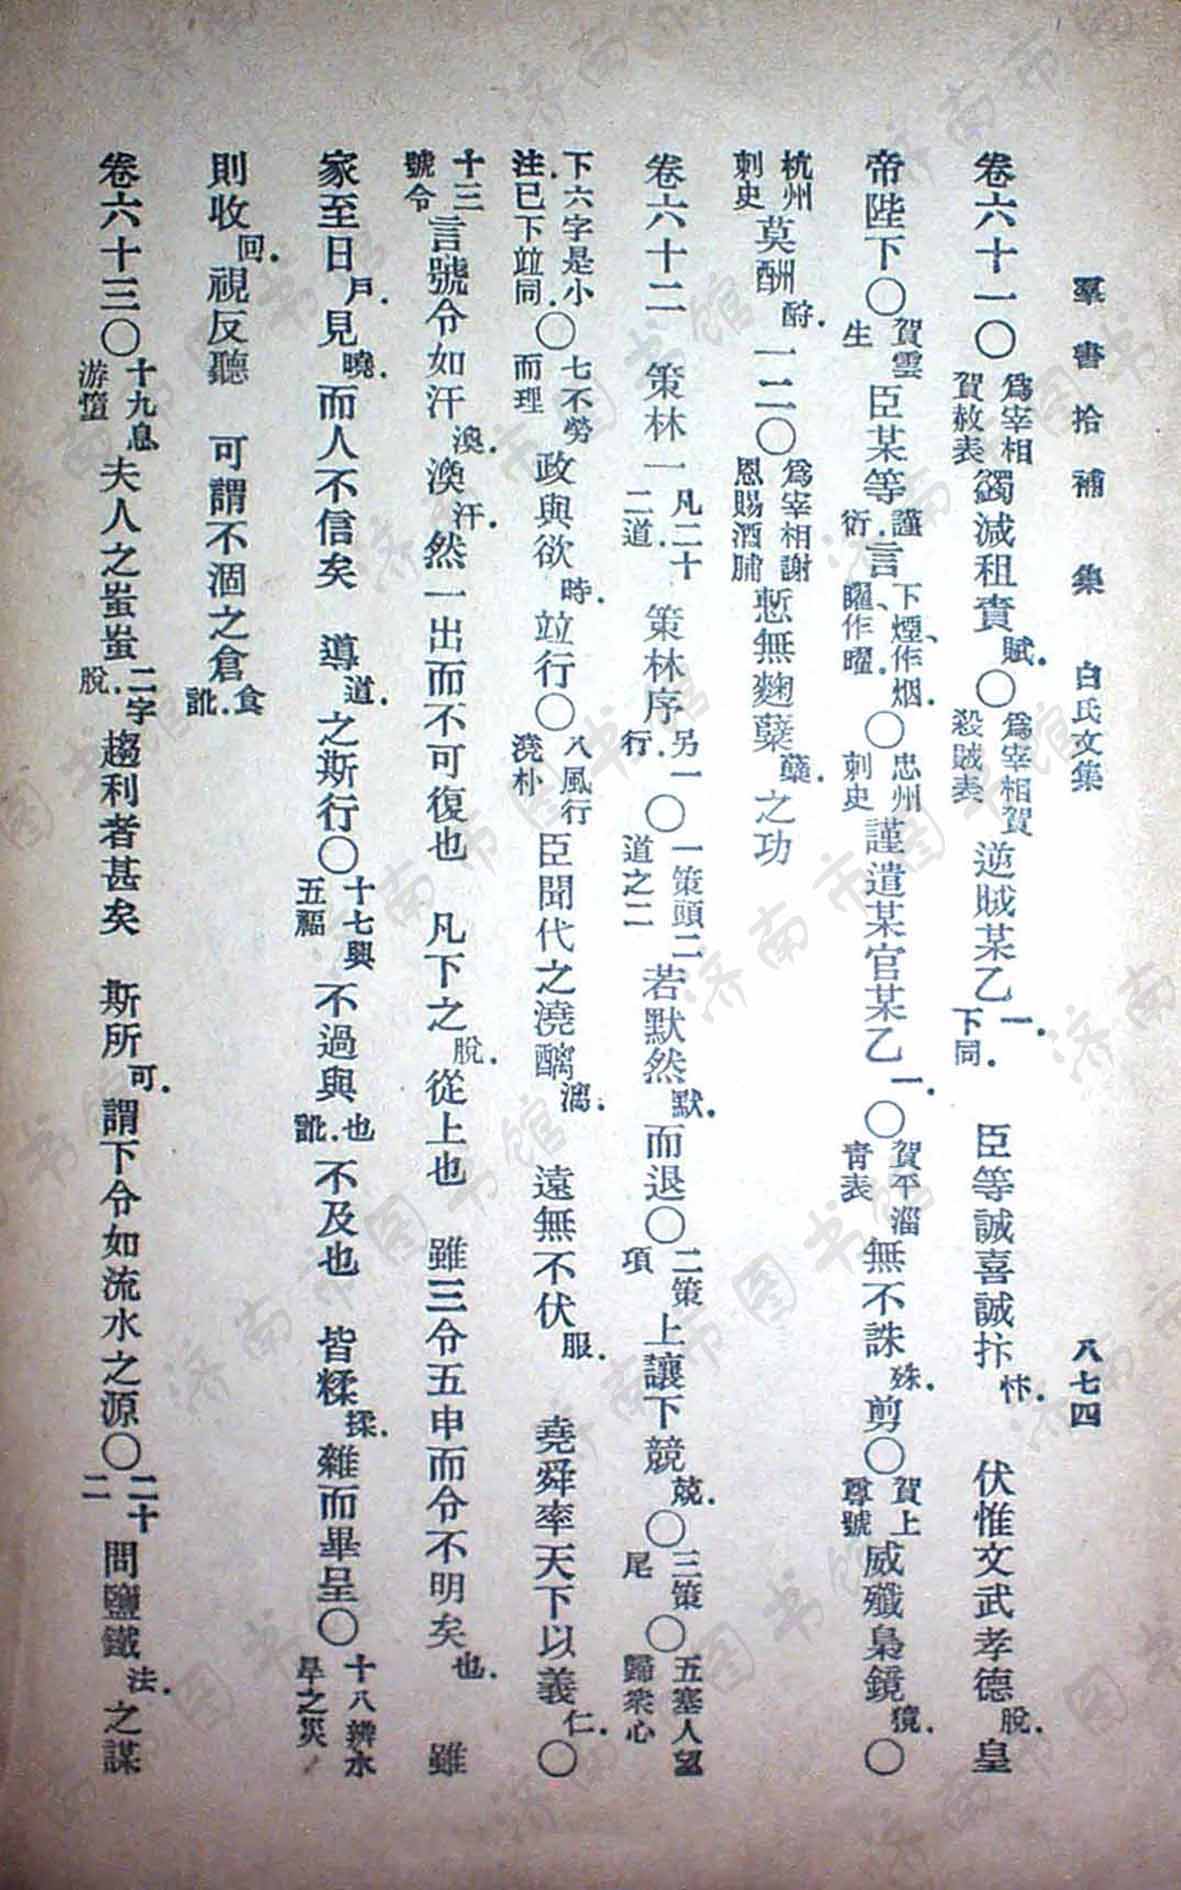 羣書拾補　集　白氏文集　八七四
卷六十一〇爲宰相賀赦表蠲減租賣賦〇爲宰相賀殺賊表逆賊某乙一下同　臣等誠喜誠抃忭　伏惟文武孝德脫皇
帝陛下〇賀雲生臣某等謹衍言下煙、作烟曜、作曜〇忠州刺史謹遣某官某乙一〇賀平淄青表無不誅殊剪〇賀上尊號威殲梟鏡獍〇
杭州刺史莫酬酹　一二〇爲宰相謝恩賜酒脯慙無麴蘖糵之功
卷六十二　策林一凡二十二道　策林序另一行〇一策頭二道之二若默然默而退〇二策項上讓下競兢〇三策尾〇五塞人望歸衆心
下六字是小注已下竝同〇七不勞而理政與欲時竝行〇八風行澆朴臣聞代之澆醨漓　遠無不伏服　堯舜率天下以義仁〇
十三號令言號令如汗渙渙汗然一出而不可復也　凡下之脫從上也　雖三令五申而令不明矣也　雖
家至日戶見曉而人不信矣　導道之斯行〇十七興五福不過與也訛不及也　皆糅揉雜而畢呈〇十八辨水旱之災
則收回視反聽　可謂不涸之倉食訛
卷六十三〇十九息游惰夫人之蚩蚩二字脫趨利者甚矣　斯所可謂下令如流水之源〇二十二問鹽鐵法之謀
济南市图书馆